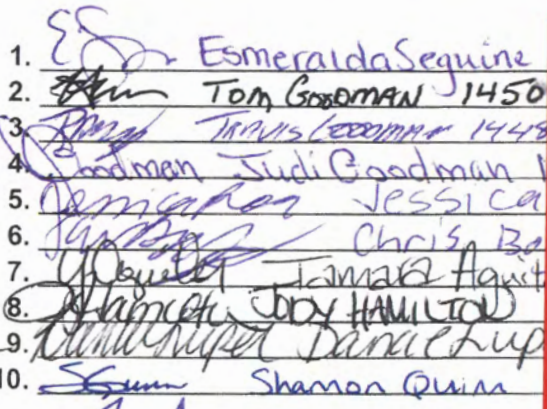 1. Esmeralda Seguine
2. Tom GOODMAN 1450
3. TRAVIS GOODMAN 1448
4. Goodman Judi Goodman
5. Jessica
6. Chris Bo
7. Tamara Aguil
8. JODY HAMILTON
9. Danae Lup
10. Shannon Quinn